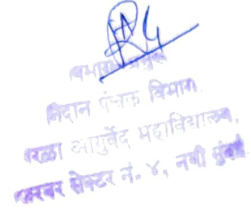 विभाग प्रमुख
निदान पंचक विभाग
आयुर्वेद महाविद्यालय,
सेक्टर नं. ४, नवी मुंबई